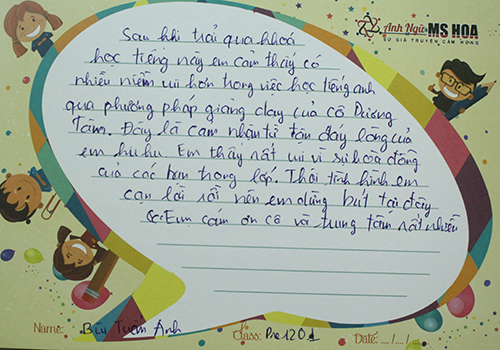 Anh Ngữ MS HOA
SỨ GIẢ TRUYỀN CẢM HỨNG
Sau khi trải qua khoá
học tiếng này em cảm thấy có
nhiều niềm vui hơn trong việc học tiếng anh
qua phương pháp giảng dạy của cô Dương
Tâm. Đây là cảm nhận từ tận đáy lòng của
em hihu Em thấy rất vui vì sự hoà đồng
của các bạn trong lớp. Thôi tình hình em
cạn lời rồi nên em dừng bút tại đây
Em cảm ơn cô và trung tâm rất nhiều
Name: Bùi Tuấn Anh Class: Pre 1201 Date: .../.../...